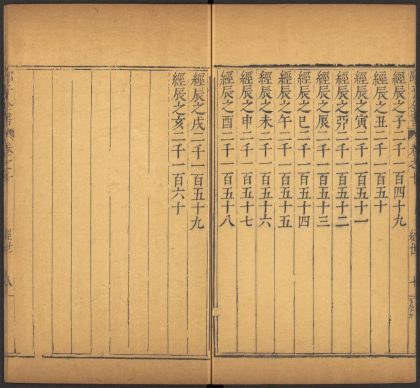 經辰之子二千一百四十九
經辰之丑二千一百五十
經辰之寅二千一百五十一
經辰之卯二千一百五十二
經辰之辰二千一百五十三
經辰之巳二千一百五十四
經辰之午二千一百五十五
經辰之未二千一百五十六
經辰之申二千一百五十七
經辰之酉二千一百五十八
經辰之戌二千一百五十九
經辰之亥二千一百六十